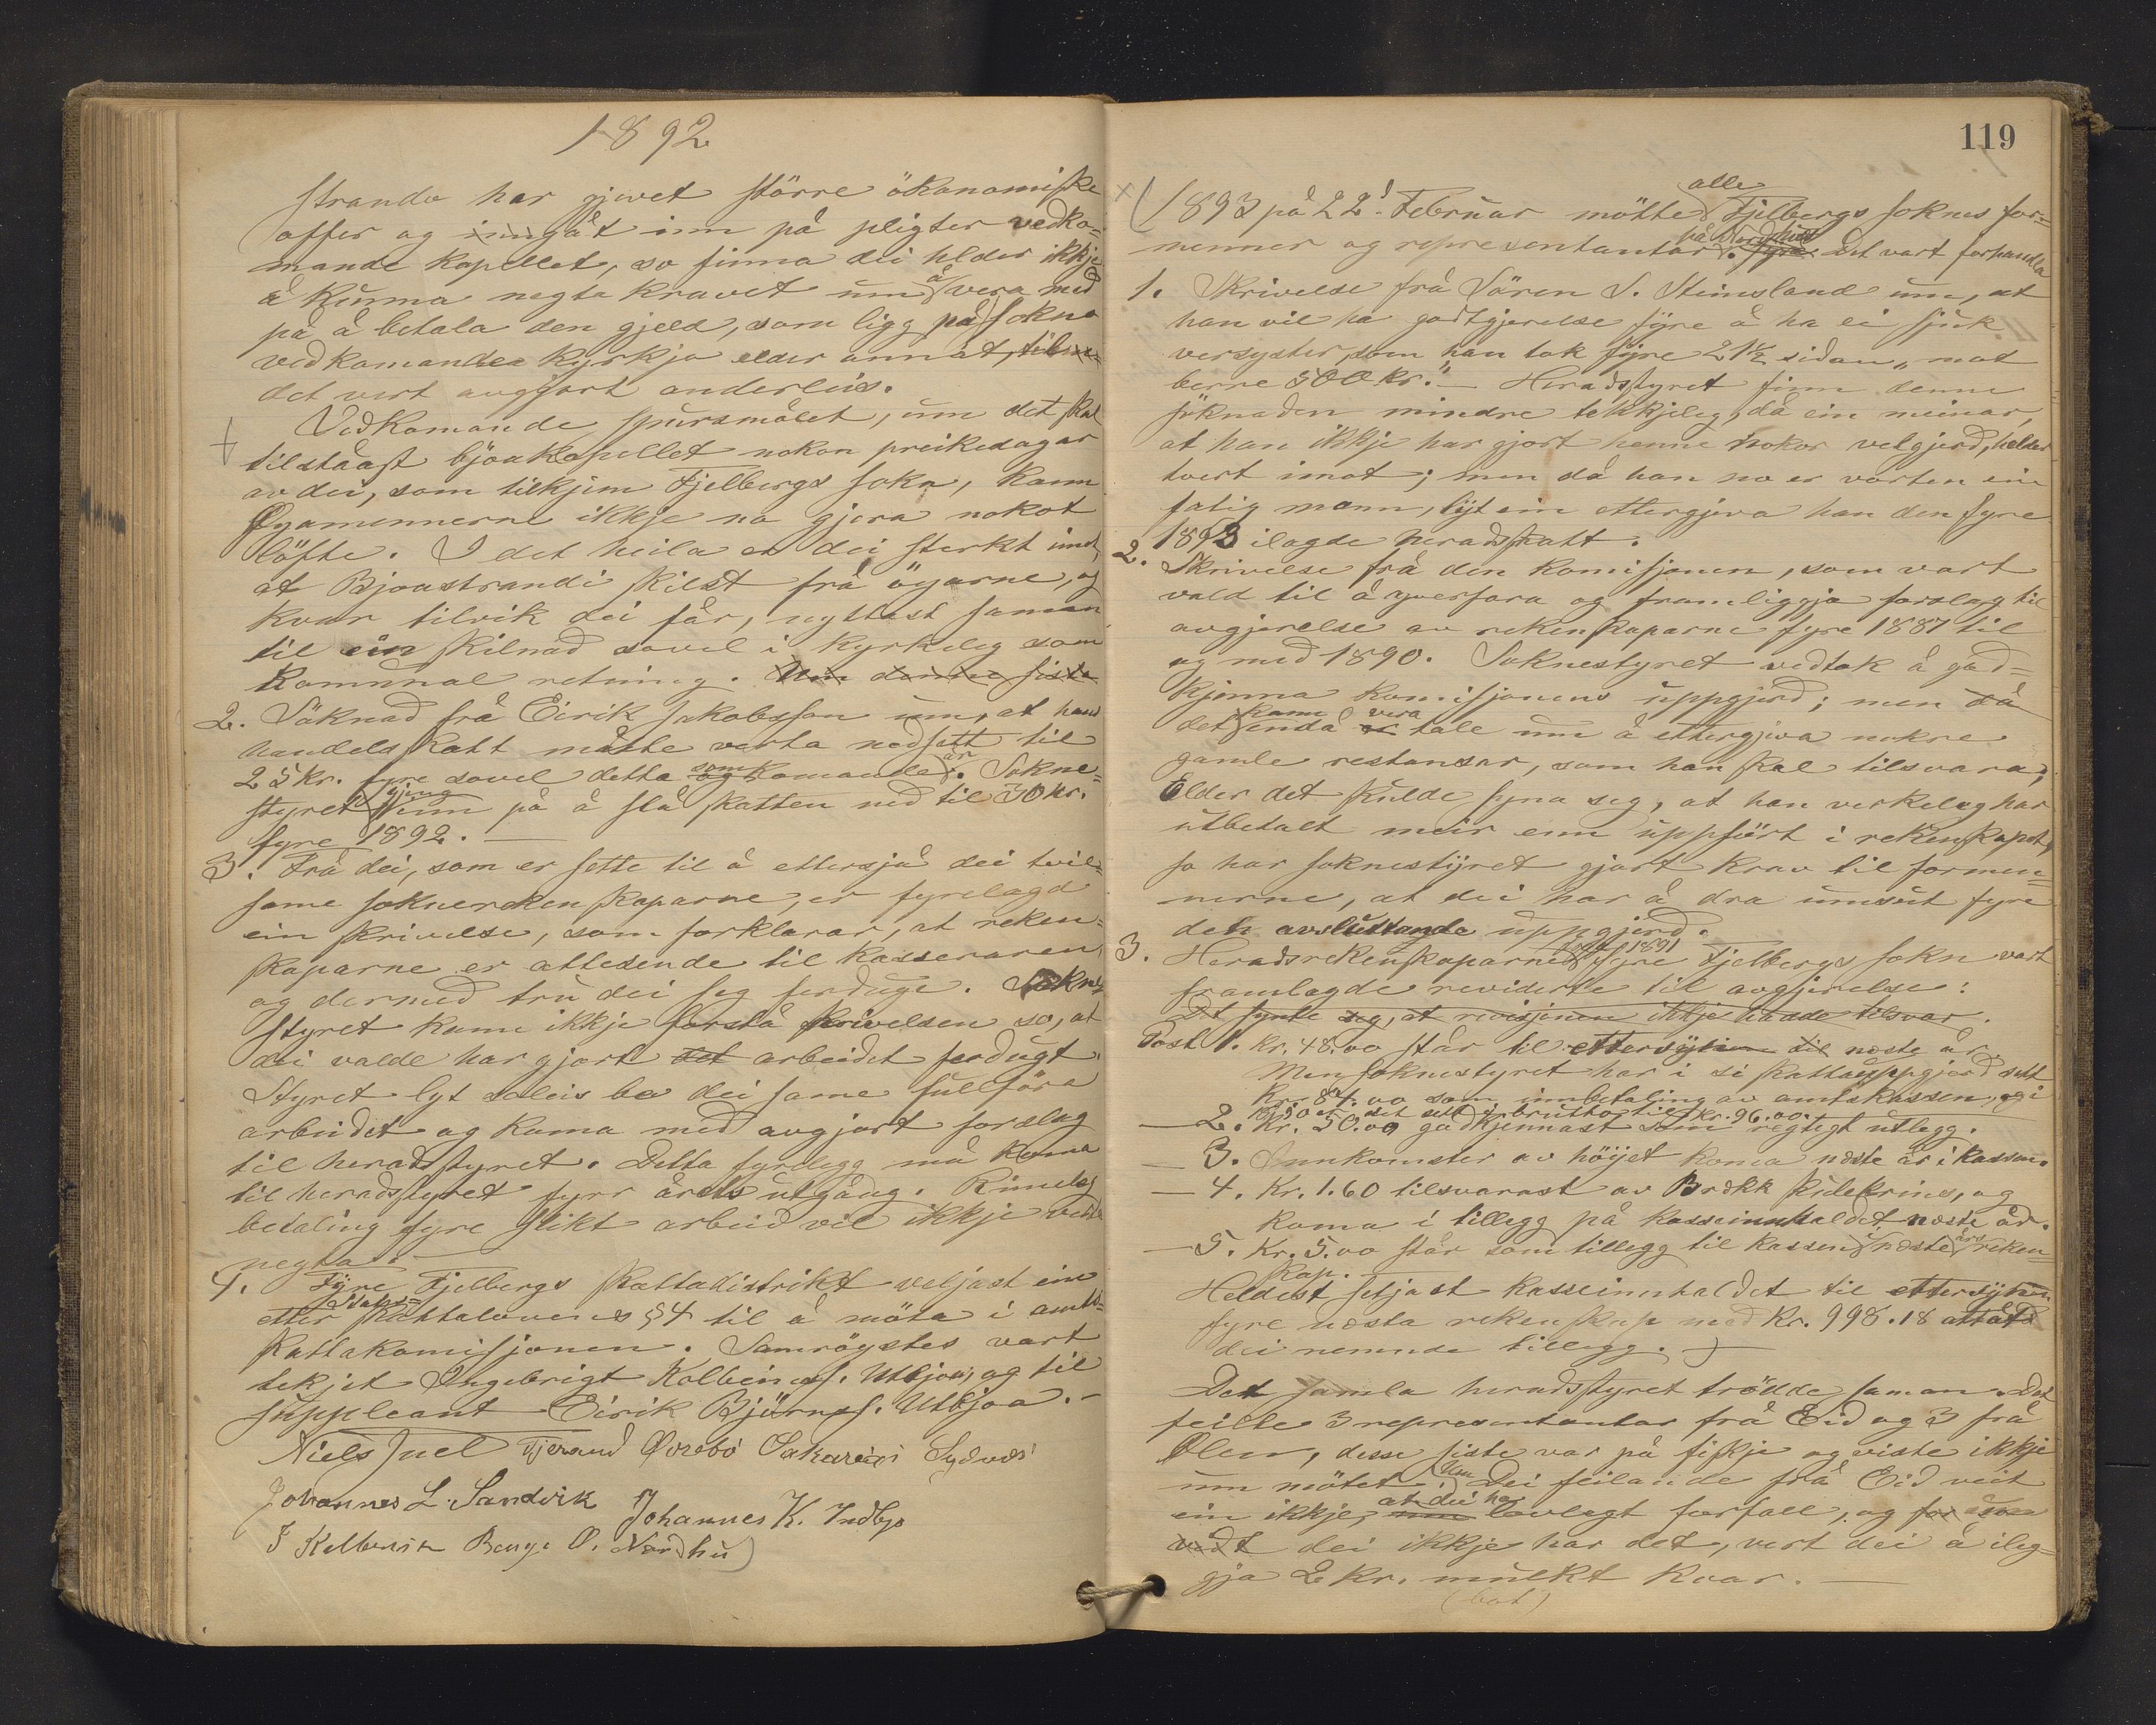 1892
stranda har gjevet större ökonomiske
offer og inngåt inn på pligter vedko-
mande kapellet, so finna dei helder ikkje
å kunna negta kravet um å vera med
på å betala den gjeld, som ligg på sokna
vedkomandes kyrkja elder annat,
det vert avgjort anderleis.
Vedkomande spursmålet, um det skal
tilståast bjoakapellet nokon preikedagar
av dei, som tilkjem Fjelbergs sokn, kann
Øyamennerne ikkje no gjera nokot
löfte. I det heila er dei sterkt imot,
at Bjoastrandi skilst frå öyarne, og
kvar tilvik dei får, nyttast saman
til ein skilnad sovel i kyrkeleg som
kommunal retning. Um denne siste
2. Söknad frå Eirik Jakobsson um, at hans
handelsskatt måtte verta nedsett til
25 kr. fyre sovel detta som komande år. Sokne-
styret gjeng inn på å slå skatten ned til 30 kr.
fyre 1892.
3. Frå dei, som er sette til å ettersjå dei tvil-
some soknerekenskaparne, er fyrelagd
ein skrivelse, som forklarar, at reken-
skaparne er attesende til kasseraren,
og dermed tru dei seg ferduge. Sokne-
styret kann ikkje forstå skrivelsen so, at
dei valde har gjort det arbeidet ferdugt.
Styret lyt soleis be dei same fullföra
arbeidet og koma med avgjort forslag
til heradsstyret. Detta fyrelegg må koma
til heradsstyret fyrr årets utgång. Rimeleg
betaling fyre slikt arbeid vil ikkje verta
negta.
4. Fyre Fjelbergs skattadistrikt veljast ein
etter Stats-skattalovens § 4 til å möta i amts-
skattakomisjonen. Samröystes vart
tekjet Ingebrigt Kolbeinss. Utbjoa, og til
suppleant Eirik Björnss. Utbjoa.
Niels Juel Fjeraud Øvrebö Sakarias Sydnes
Johannes L. Sandvik Johannes K. Indbjo
I Kolbeinsen Beng. O. Nordhu

119
1893 på 22. Februar mötte alle Fjelbergs soknes for-
menner og representantar på Nordhus. Det vart forhandla
1. Skrivelse frå Sören S. Steinsland um, at
han vil ha godtgjerelse fyre å ha ei sjuk
versyster, som han tok fyre 21½ sidan, „mot
berre 500 kr." Heradsstyret finn denne
söknaden mindre tekkjeleg, då ein meinar,
at han ikkje har gjort henne nokor velgjerd, helder
tvert imot; men då han no er vorten ein
fatig mann, lyt ein ettergjeva han den fyre
1893 ilagde heradskatt.
2. Skrivelse frå den komisjonen, som vart
vald til å yverfara og framliggja forslag til
avgjerelse av rekenskaparne fyre 1887 til
og med 1890. Soknestyret vedtok å god-
kjenna komisjonens uppgjerd; men då
det kann endå vera tale um å ettergjeva nokre
gamle restansar, som han skal tilsvara,
Elder det skulde syna seg, at han verkeleg har
utbetalt meir enn uppfört i rekenskapet,
so har soknestyret gjort krav til formen-
nerne, at dei har å dra umsut fyre
den avsluttande uppgjerd.
3. Heradsrekenskaparne for 1891 fyre Fjelbergs sokn vart
framlagde reviderte til avgjerelse:
Det synte seg, at revisjonen ikkje hadde tilsvar.
Post 1. Kr. 48.00 står til ettersyn til neste år.
Men soknestyret har i si skattauppgjerd sett
Kr. 84.00 som innbetaling av amtskassen, og i
Kr. 90 er det sett i brutto til kr. 96.00.
— 2. Kr. 50.00 godkjennast som regtigt utlegg.
— 3. Innkomster av höijet koma neste år i kassen.
— 4. Kr. 1.60 tilsvarast av Brekk skulekrins, og
koma i tillegg på kasseinnhaldet neste år.
— 5. Kr. 5.00 står som tillegg til kassen i neste års reken-
skap.
Heldest setjast kasseinnhaldet til ettersyn
fyre neste rekenskap med Kr. 998.18 attåt
dei nemnde tillegg.
Det samla heradsstyret trödde saman. Det
feilte 3 representantar frå Eid og 3 frå
Ølen, desse siste var på fiskje og viste ikkje
um mötet. Um Dei feilande frå Eid veit
ein ikkje, at dei ha lovlegt forfall, og for som
vidt dei ikkje har det, vert dei å ileg-
gja 2 kr. mulkt kvar.
(bot)